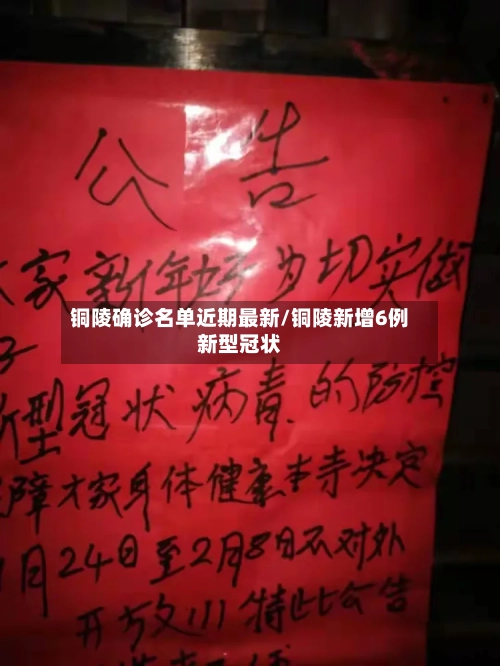 公告
大家新年好为切实做
好
新型冠状病毒的防控
保障大家身体健康本寺决定
1月24日至2月8日不对外
开放文川特此公告
铜陵确诊名单近期最新/铜陵新增6例
新型冠状